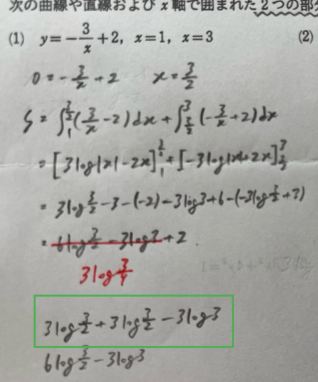 次の曲線や直線および x 軸で囲まれた2つの部分
(1) y=-3/x+2, x=1, x=3 (2)
0=-3/x+2 x=3/2
S=∫_1^{3/2}(3/x-2)dx+∫_{3/2}^3(-3/x+2)dx
=[3log|x|-2x]_1^{3/2}+[-3log|x|+2x]_{3/2}^3
=3log3/2-3-(-2)-3log3+6-(-3log3/2+3)
=6log3/2-3log3+2
3log3/4
3log3/2+3log3/2-3log3
6log3/2-3log3